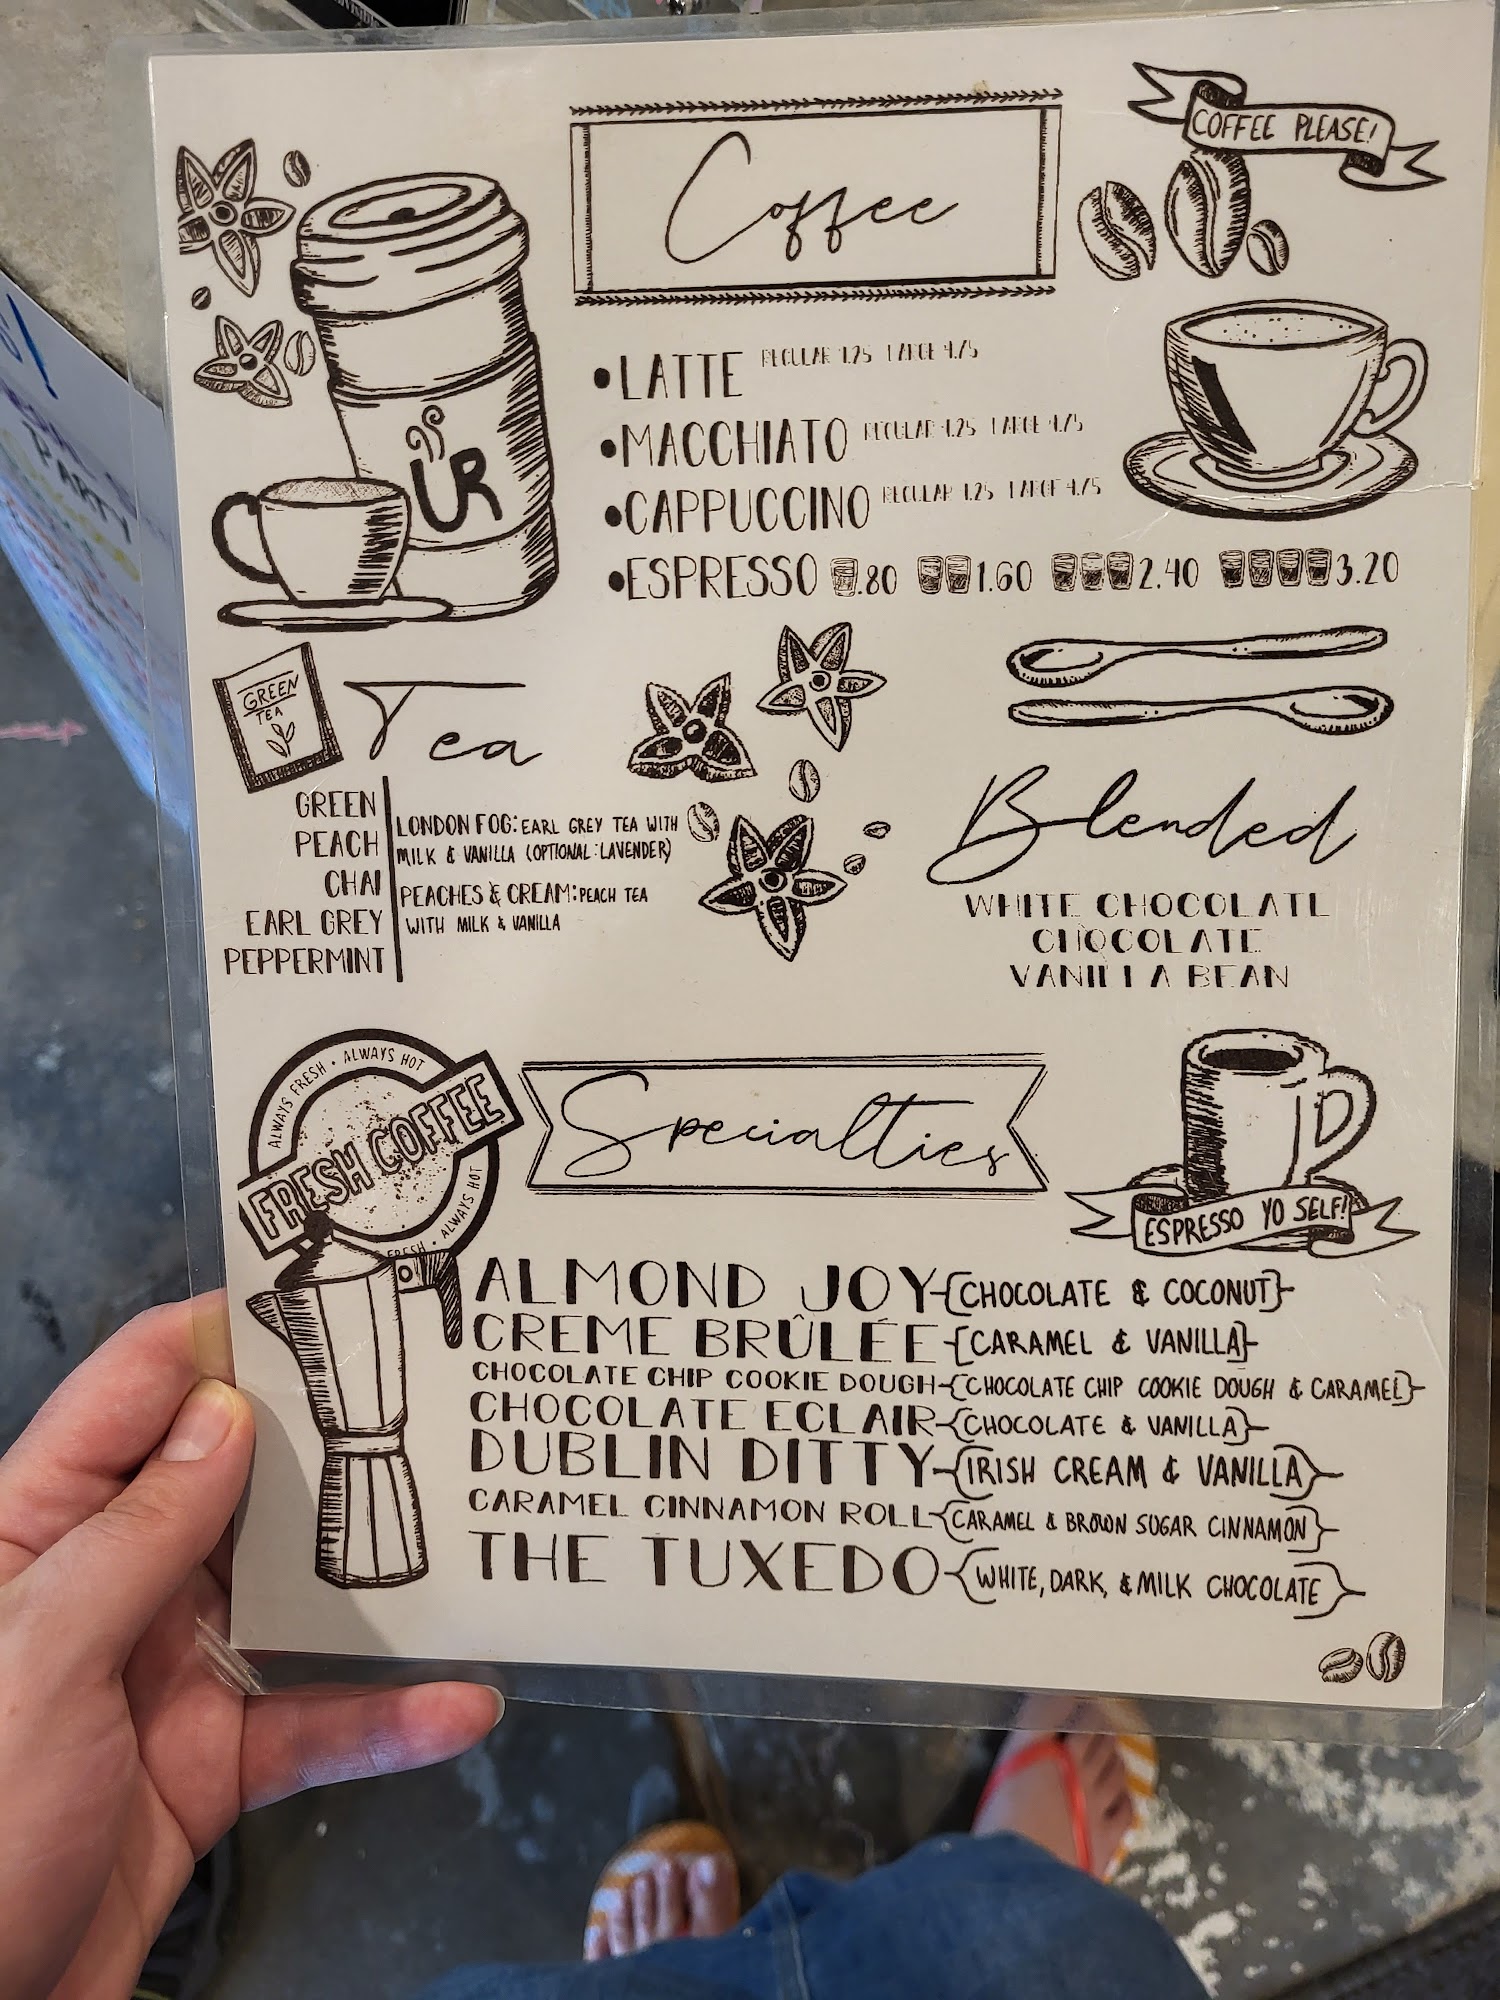 COFFEE PLEASE!
Coffee
•LATTE REGULAR 4.25 LARGE 4.75
•MACCHIATO REGULAR 4.25 LARGE 4.75
•CAPPUCCINO REGULAR 4.25 LARGE 4.75
•ESPRESSO .80 1.60 2.40 3.20
UR
GREEN
TEA
Tea
GREEN
PEACH
CHAI
EARL GREY
PEPPERMINT
LONDON FOG: EARL GREY TEA WITH
MILK & VANILLA (OPTIONAL: LAVENDER)
PEACHES & CREAM: PEACH TEA
WITH MILK & VANILLA
Blended
WHITE CHOCOLATE
CHOCOLATE
VANILLA BEAN
ALWAYS FRESH • ALWAYS HOT
FRESH COFFEE
FRESH • ALWAYS HOT
Specialties
ESPRESSO YO SELF!
ALMOND JOY-{CHOCOLATE & COCONUT}-
CREME BRÛLÉE-{CARAMEL & VANILLA}-
CHOCOLATE CHIP COOKIE DOUGH-{CHOCOLATE CHIP COOKIE DOUGH & CARAMEL}-
CHOCOLATE ECLAIR-{CHOCOLATE & VANILLA}-
DUBLIN DITTY-{IRISH CREAM & VANILLA}-
CARAMEL CINNAMON ROLL-{CARAMEL & BROWN SUGAR CINNAMON}-
THE TUXEDO-{WHITE, DARK, & MILK CHOCOLATE}-
PARTY